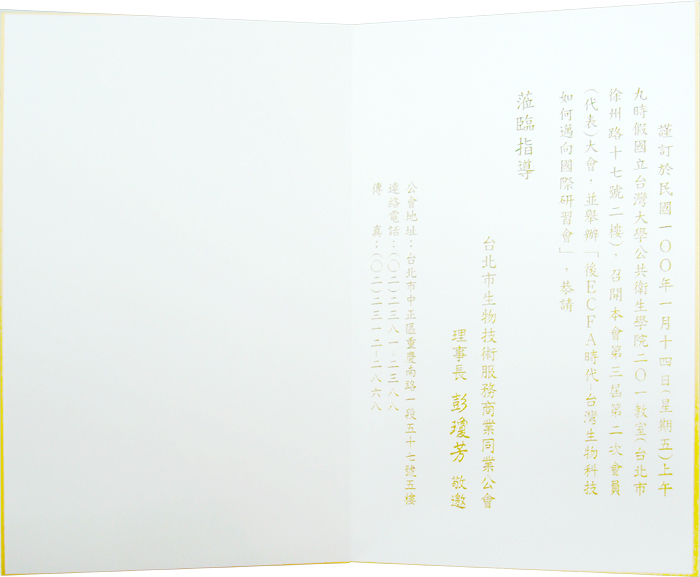 謹訂於民國一〇〇年一月十四日(星期五)上午
九時假國立台灣大學公共衛生學院二〇一教室(台北市
徐州路十七號二樓)，召開本會第三屆第二次會員
(代表)大會，並舉辦「後ECFA時代-台灣生物科技
如何邁向國際研習會」，恭請
蒞臨指導
台北市生物技術服務商業同業公會
理事長 彭瓊芳 敬邀
公會地址：台北市中正區重慶南路一段五十七號五樓
連絡電話：(〇二)二三八一-二三八八
傳　真：(〇二)二三一二-二八六八